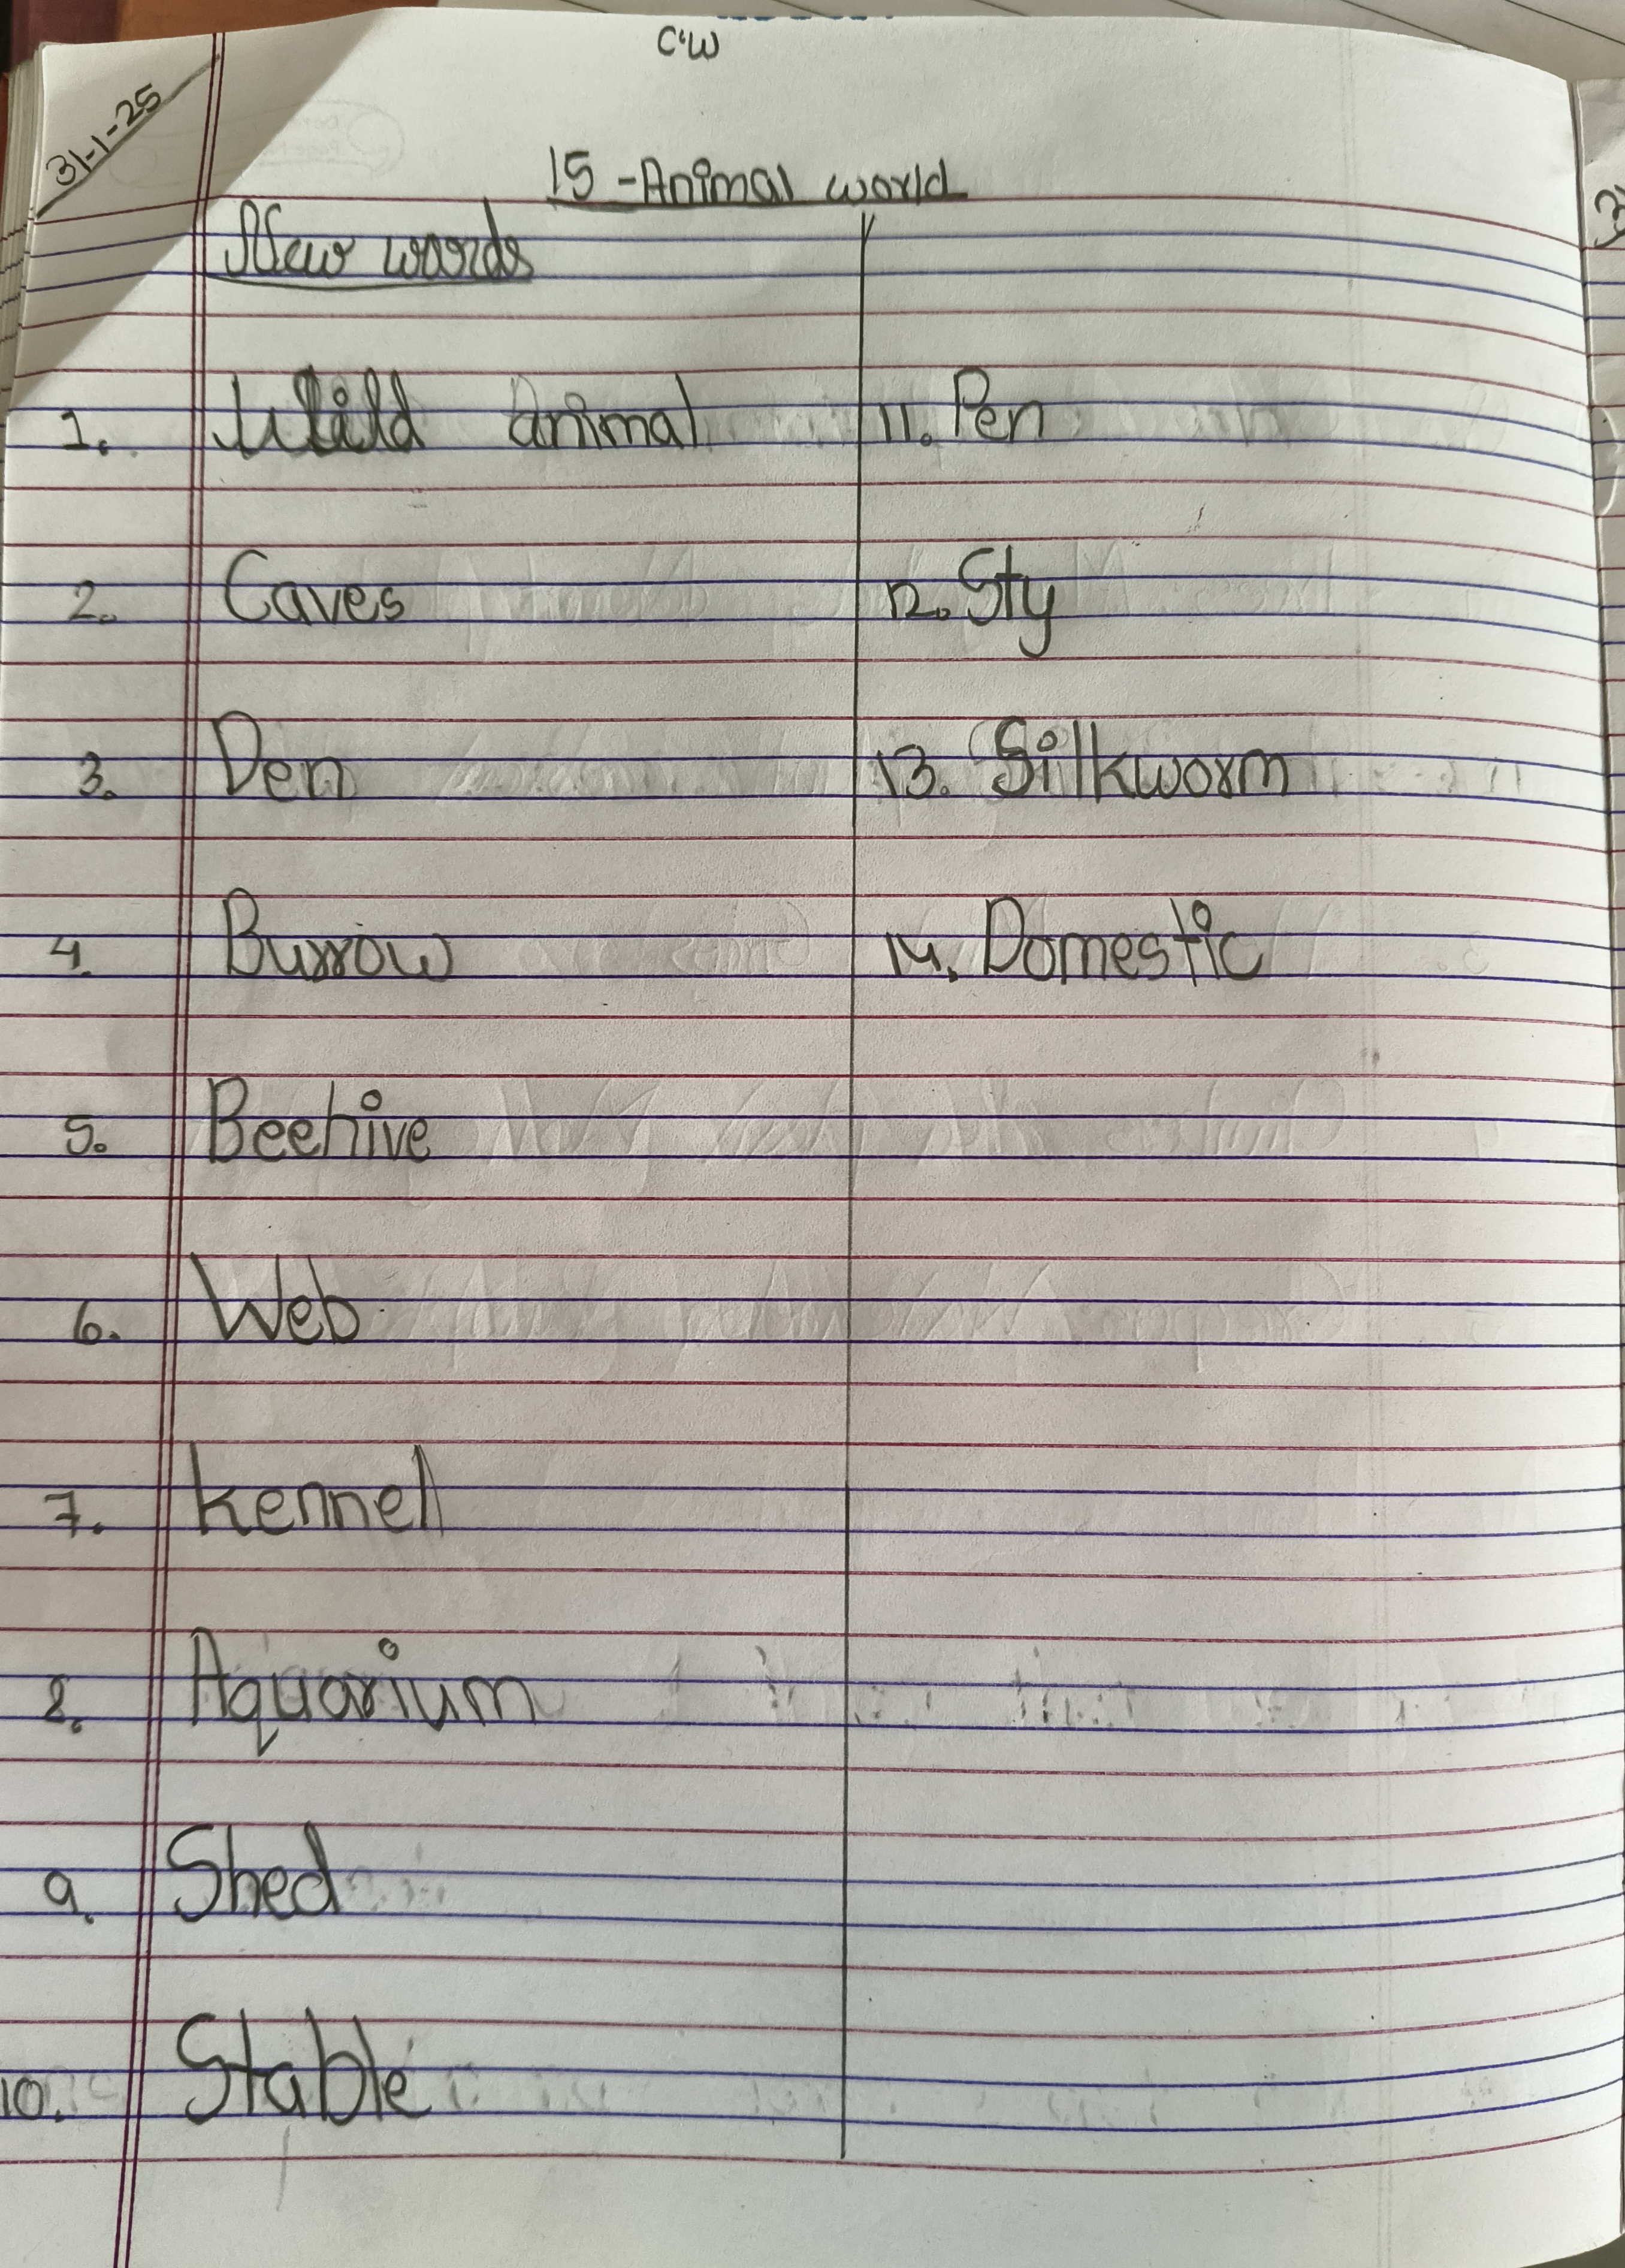 C.W
31-1-25
15 - Animal world
New words
1. Wild animal
2. Caves
3. Den
4. Burrow
5. Beehive
6. Web
7. kennel
8. Aquarium
9. Shed
10. Stable
11. Pen
12. Sty
13. Silkworm
14. Domestic